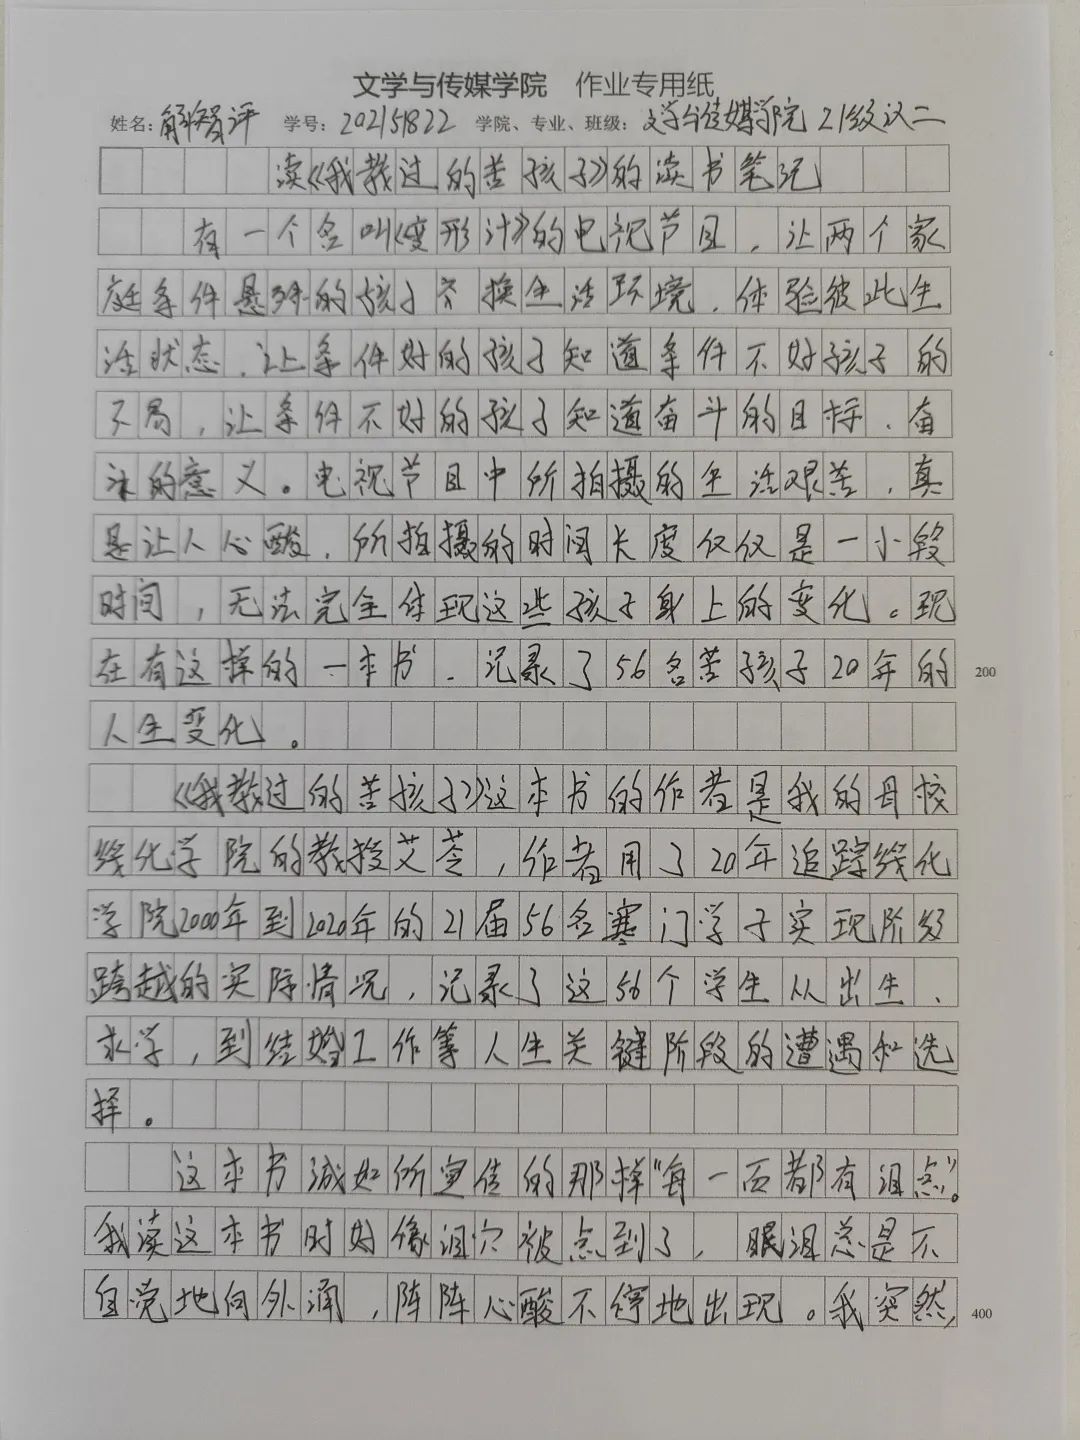 文学与传媒学院 作业专用纸
姓名:解智评 学号:202151822 学院、专业、班级:文学与传媒学院 21级汉二
读《我教过的苦孩子》的读书笔记
有一个名叫《变形计》的电视节目，让两个家
庭条件悬殊的孩子互换生活环境，体验彼此生
活状态，让条件好的孩子知道条件不好孩子的
不易，让条件不好的孩子知道奋斗的目标、奋
的意义。电视节目中所拍摄的生活艰苦，真
是让人心酸，所拍摄的时间长度仅仅是一小段
时间，无法完全体现这些孩子身上的变化。现
在有这样的一本书，记录了56名苦孩子20年的
200
人生变化。
《我教过的苦孩子》这本书的作者是我的母校
绥化学院的教授艾苓，作者用了20年追踪绥化
学院2000年到2020年的21届56名寒门学子实现阶级
跨越的实际情况，记录了这56个学生从出生、
求学，到结婚工作等人生关键阶段的遭遇和选
择。
这本书诚如所宣传的那样“每一页都有泪点”。
我读这本书时好像泪穴被点到了，眼泪总是不
自觉地向外涌，阵阵心酸不停地出现。我突然，
400